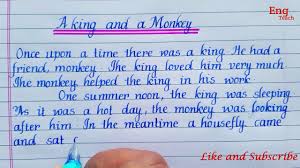 Eng
Teach
A king and a Monkey
Once upon a time there was a king. He had a
friend, monkey. The king loved him very much
The monkey helped the king in his work.
One summer noon, the king was sleeping.
As it was a hot day, the monkey was looking
after him. In the meantime a housefly came
and sat
Like and Subscribe